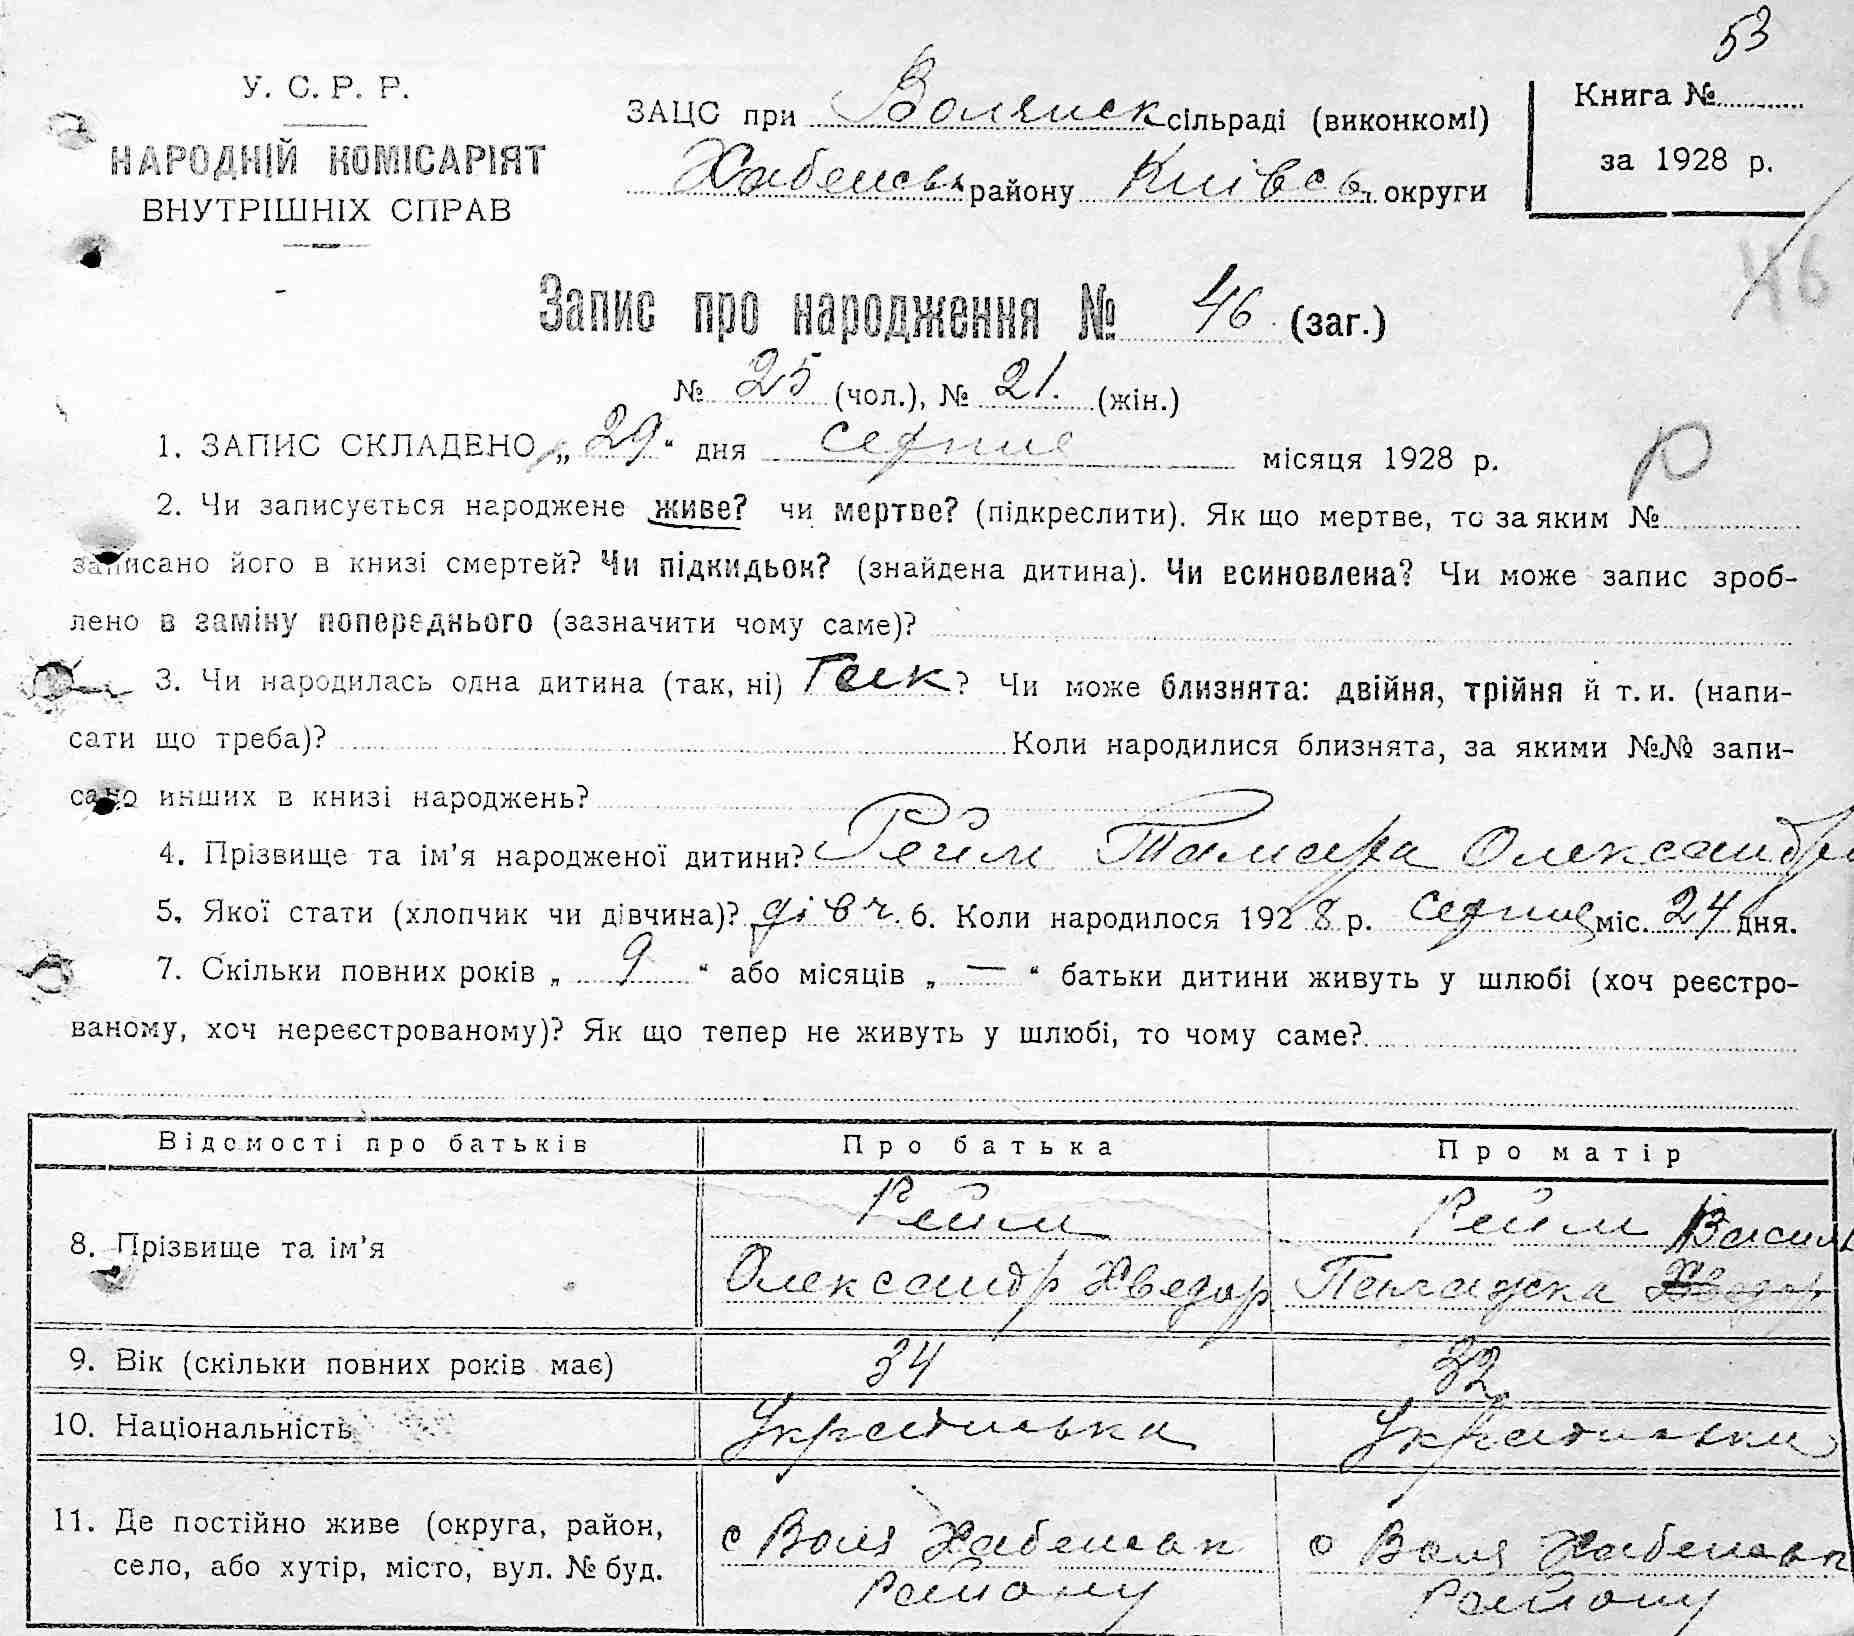 53
У. С. Р. Р.
НАРОДНІЙ КОМІСАРІЯТ
ВНУТРІШНІХ СПРАВ
ЗАЦС при Волянск сільраді (виконкомі)
Хабенськ району Київсь округи
Книга №
за 1928 р.
46
Запис про народження № 46 (заг.)
№ 25 (чол.), № 21. (жін.)
1. ЗАПИС СКЛАДЕНО „29“ дня серпня місяця 1928 р.
2. Чи записується народжене живе? чи мертве? (підкреслити). Як що мертве, то за яким №
записано його в книзі смертей? Чи підкидьок? (знайдена дитина). Чи всиновлена? Чи може запис зроб-
лено в заміну попереднього (зазначити чому саме)?
3. Чи народилась одна дитина (так, ні) Так? Чи може близнята: двійня, трійня й т. и. (напи-
сати що треба)? Коли народилися близнята, за якими №№ запи-
сано инших в книзі народжень?
4. Прізвище та ім’я народженої дитини? Рейм Тамара Олександр
5. Якої стати (хлопчик чи дівчина)? дівч. 6. Коли народилося 1928 р. серпня міс. 24 дня.
7. Скільки повних років „ 9 “ або місяців „ — “ батьки дитини живуть у шлюбі (хоч реєстро-
ваному, хоч нереєстрованому)? Як що тепер не живуть у шлюбі, то чому саме?
Відомості про батьків Про батька Про матір
8. Прізвище та ім’я
Рейм
Олександр Хведор
Рейм Василь
Хведор
9. Вік (скільки повних років має) 34 32
10. Національність Українська Українська
11. Де постійно живе (округа, район,
село, або хутір, місто, вул. № буд.
с Воля Хабенськ
району
с Воля Хабенськ
району